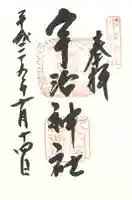 奉拝
宇治神社
平成二十六年十月十四日